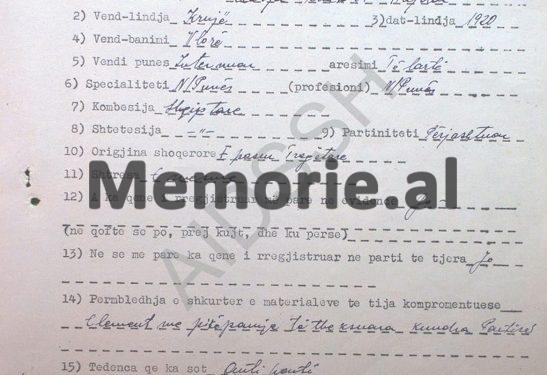 2) Vend-lindja Krujë 3)dat-lindja 1920
4) Vend-banimi Vlorë
5) Vendi punes Internuar aresimi Të lartë
6) Specialiteti N/Punës (profesioni) N/Punës
7) Kombesija Shqiptare
8) Shtetesija -"- 9) Partiniteti Përjashtuar
10) Origjina shoqerore E pasur Tregëtare
11) Shtresa
Memorie.al
12) A ka qene i rregjistruar më pare ne evidence
(ne qofte se po, prej kujt, dhe ku perse)
13) Ne se me pare ka qene i rregjistruar ne parti te tjera Jo
AIDSSH
14) Permbledhja e shkurter e materialeve te tija kompromentuese
Element me pikëpamje të theksuara kundra Partisë
15) Tedenca qe ka sot Anti parti